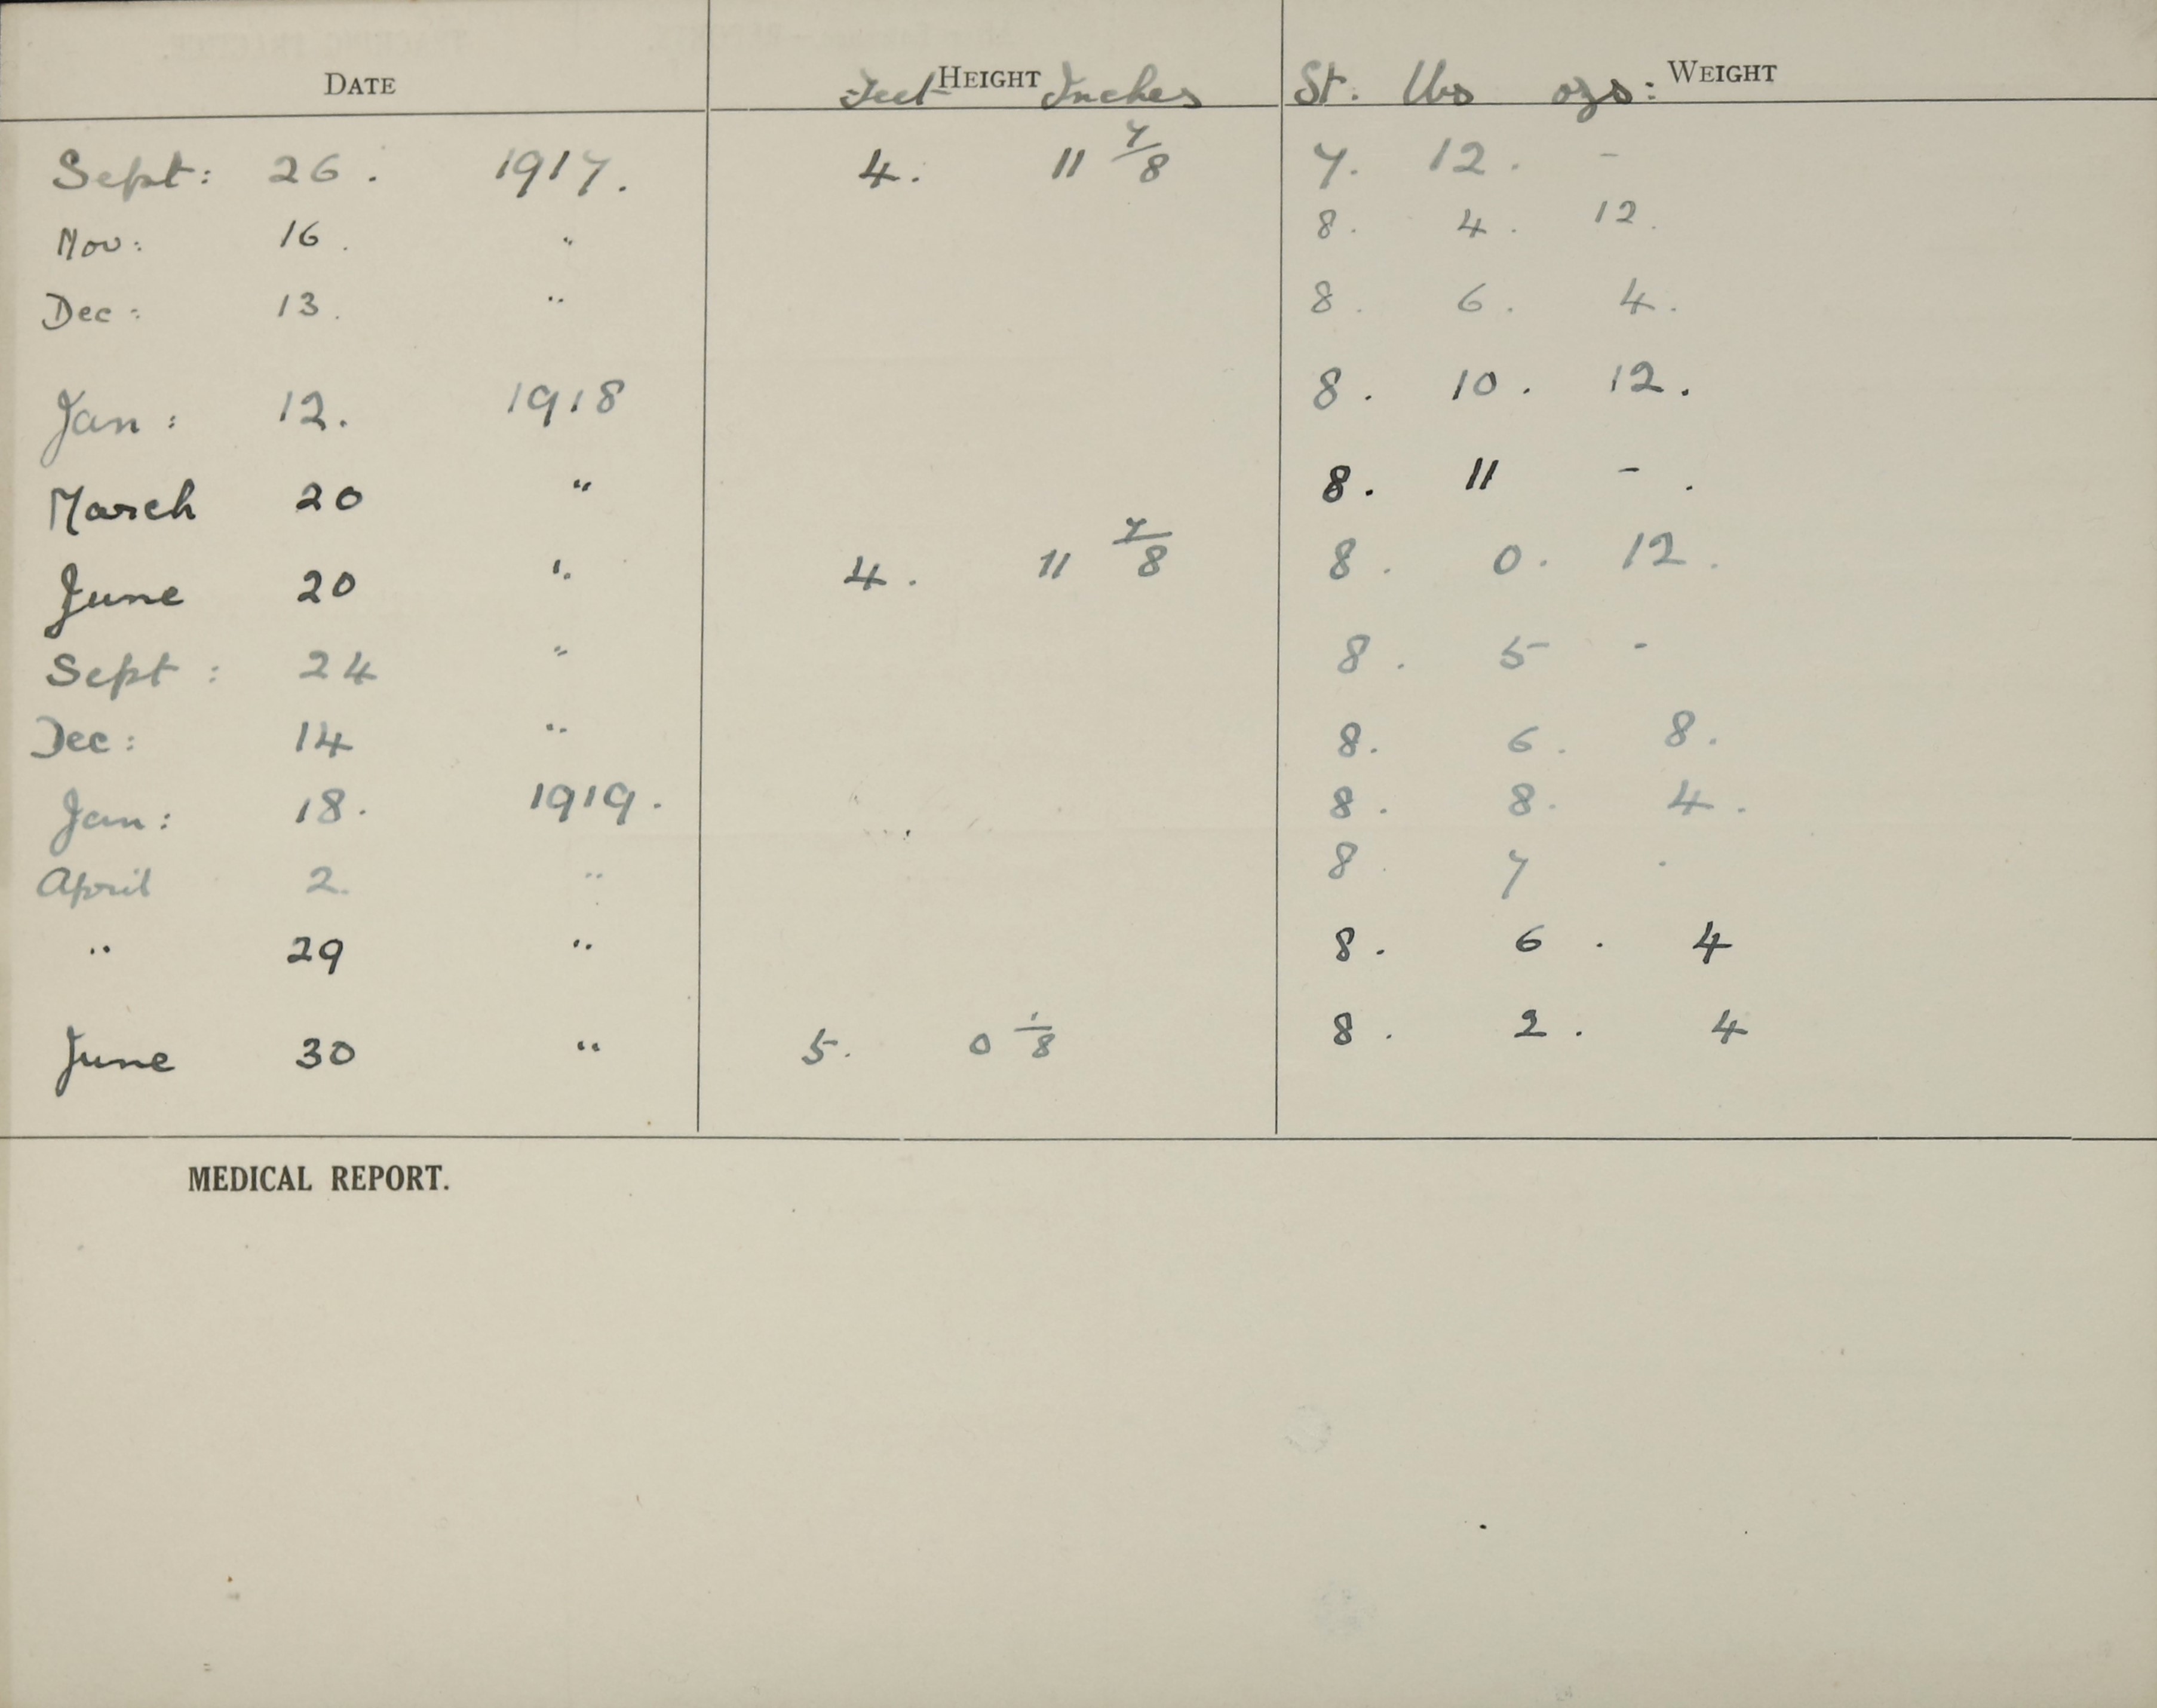 DATE HEIGHT Feet Inches St. lbs ozs: WEIGHT
Sept: 26. 1917. 4. 11 7/8 7. 12. -
Nov: 16. " 8. 4. 12.
Dec: 13. " 8. 6. 4.
Jan: 12. 1918 8. 10. 12.
March 20 " 8. 11 - .
June 20 " 4. 11 7/8 8. 0. 12.
Sept: 24 " 8. 5 -
Dec: 14 " 8. 6. 8.
Jan: 18. 1919. 8. 8. 4.
April 2. " 8. 7 -
" 29 " 8. 6. 4
June 30 " 5. 0 1/8 8. 2. 4
MEDICAL REPORT.